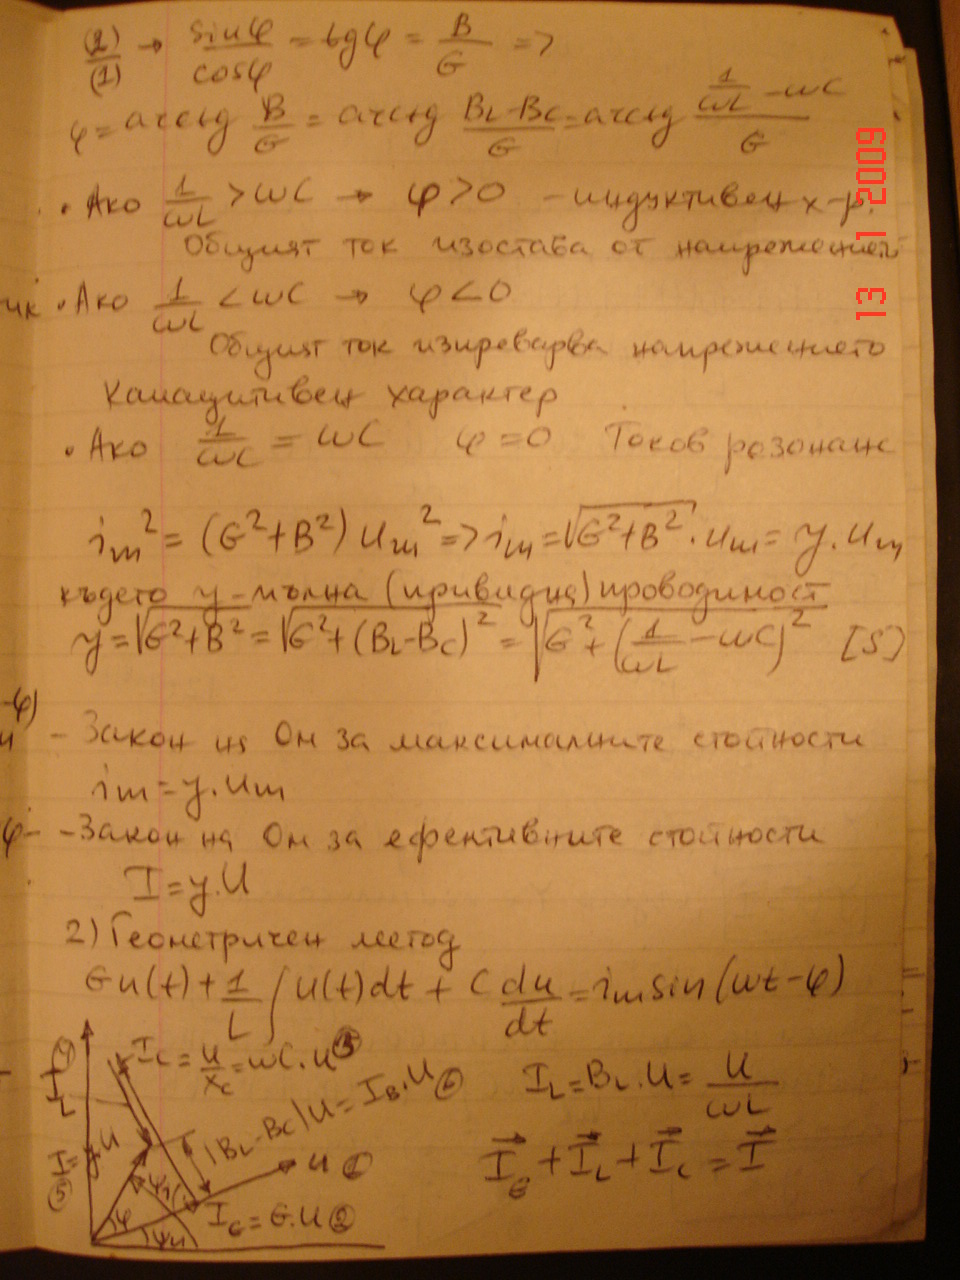 (2)/(1) → sinφ/cosφ = tgφ = B/G =>
φ = arctg B/G = arctg (BL-BC)/G = arctg (1/ωL - ωC)/G
• Ако 1/ωL > ωC → φ>0 - индуктивен х-р.
Общият ток изостава от напрежениет
ик • Ако 1/ωL < ωC → φ<0
Общият ток изпреварва напрежението
Капацитивен характер
• Ако 1/ωL = ωC φ=0 Токов резонанс
im² = (G²+B²) Um² => im = √(G²+B²) . Um = y.Um
където y-пълна (привидна) проводимост
y = √(G²+B²) = √(G²+(BL-BC)²) = √(G²+(1/ωL - ωC)²) [S]
-φ)
- Закон на Ом за максималните стойности
im = y.Um
φ- - Закон на Ом за ефективните стойности
I = y.U
2) Геометричен метод
Gu(t) + 1/L ∫U(t)dt + C du/dt = im sin(ωt-φ)
④ IL
IC = U/XC = ωC.U ③
|BL-BC|U = IB.U ⑥
IL = BL.U = U/ωL
I = y.U ⑤
U ①
IG = G.U ②
φ
IG + IL + IC = I
13 1 2009